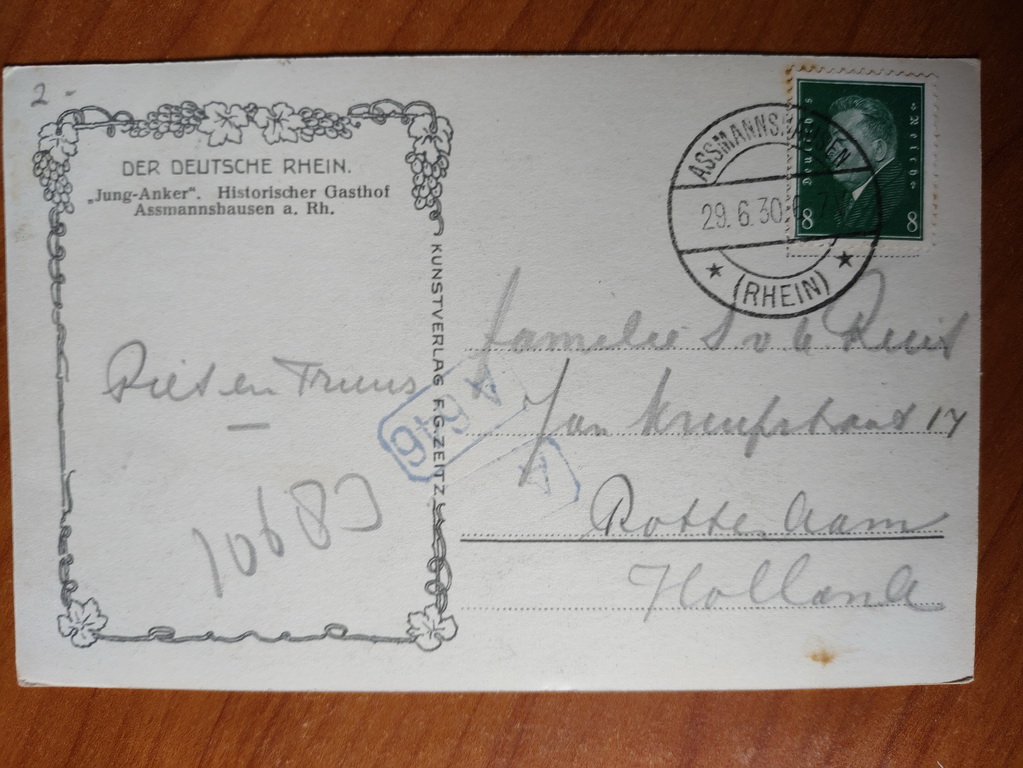 2-
DER DEUTSCHE RHEIN.
„Jung-Anker". Historischer Gasthof
Assmannshausen a. Rh.
KUNSTVERLAG F.G. ZEITZ
Piet en Truus
10683
ASSMANNSHAUSEN
29. 6. 30.
(RHEIN)
Deutsches Reich
8 8
Familie S v d
Jan 17
Rotterdam
Holland